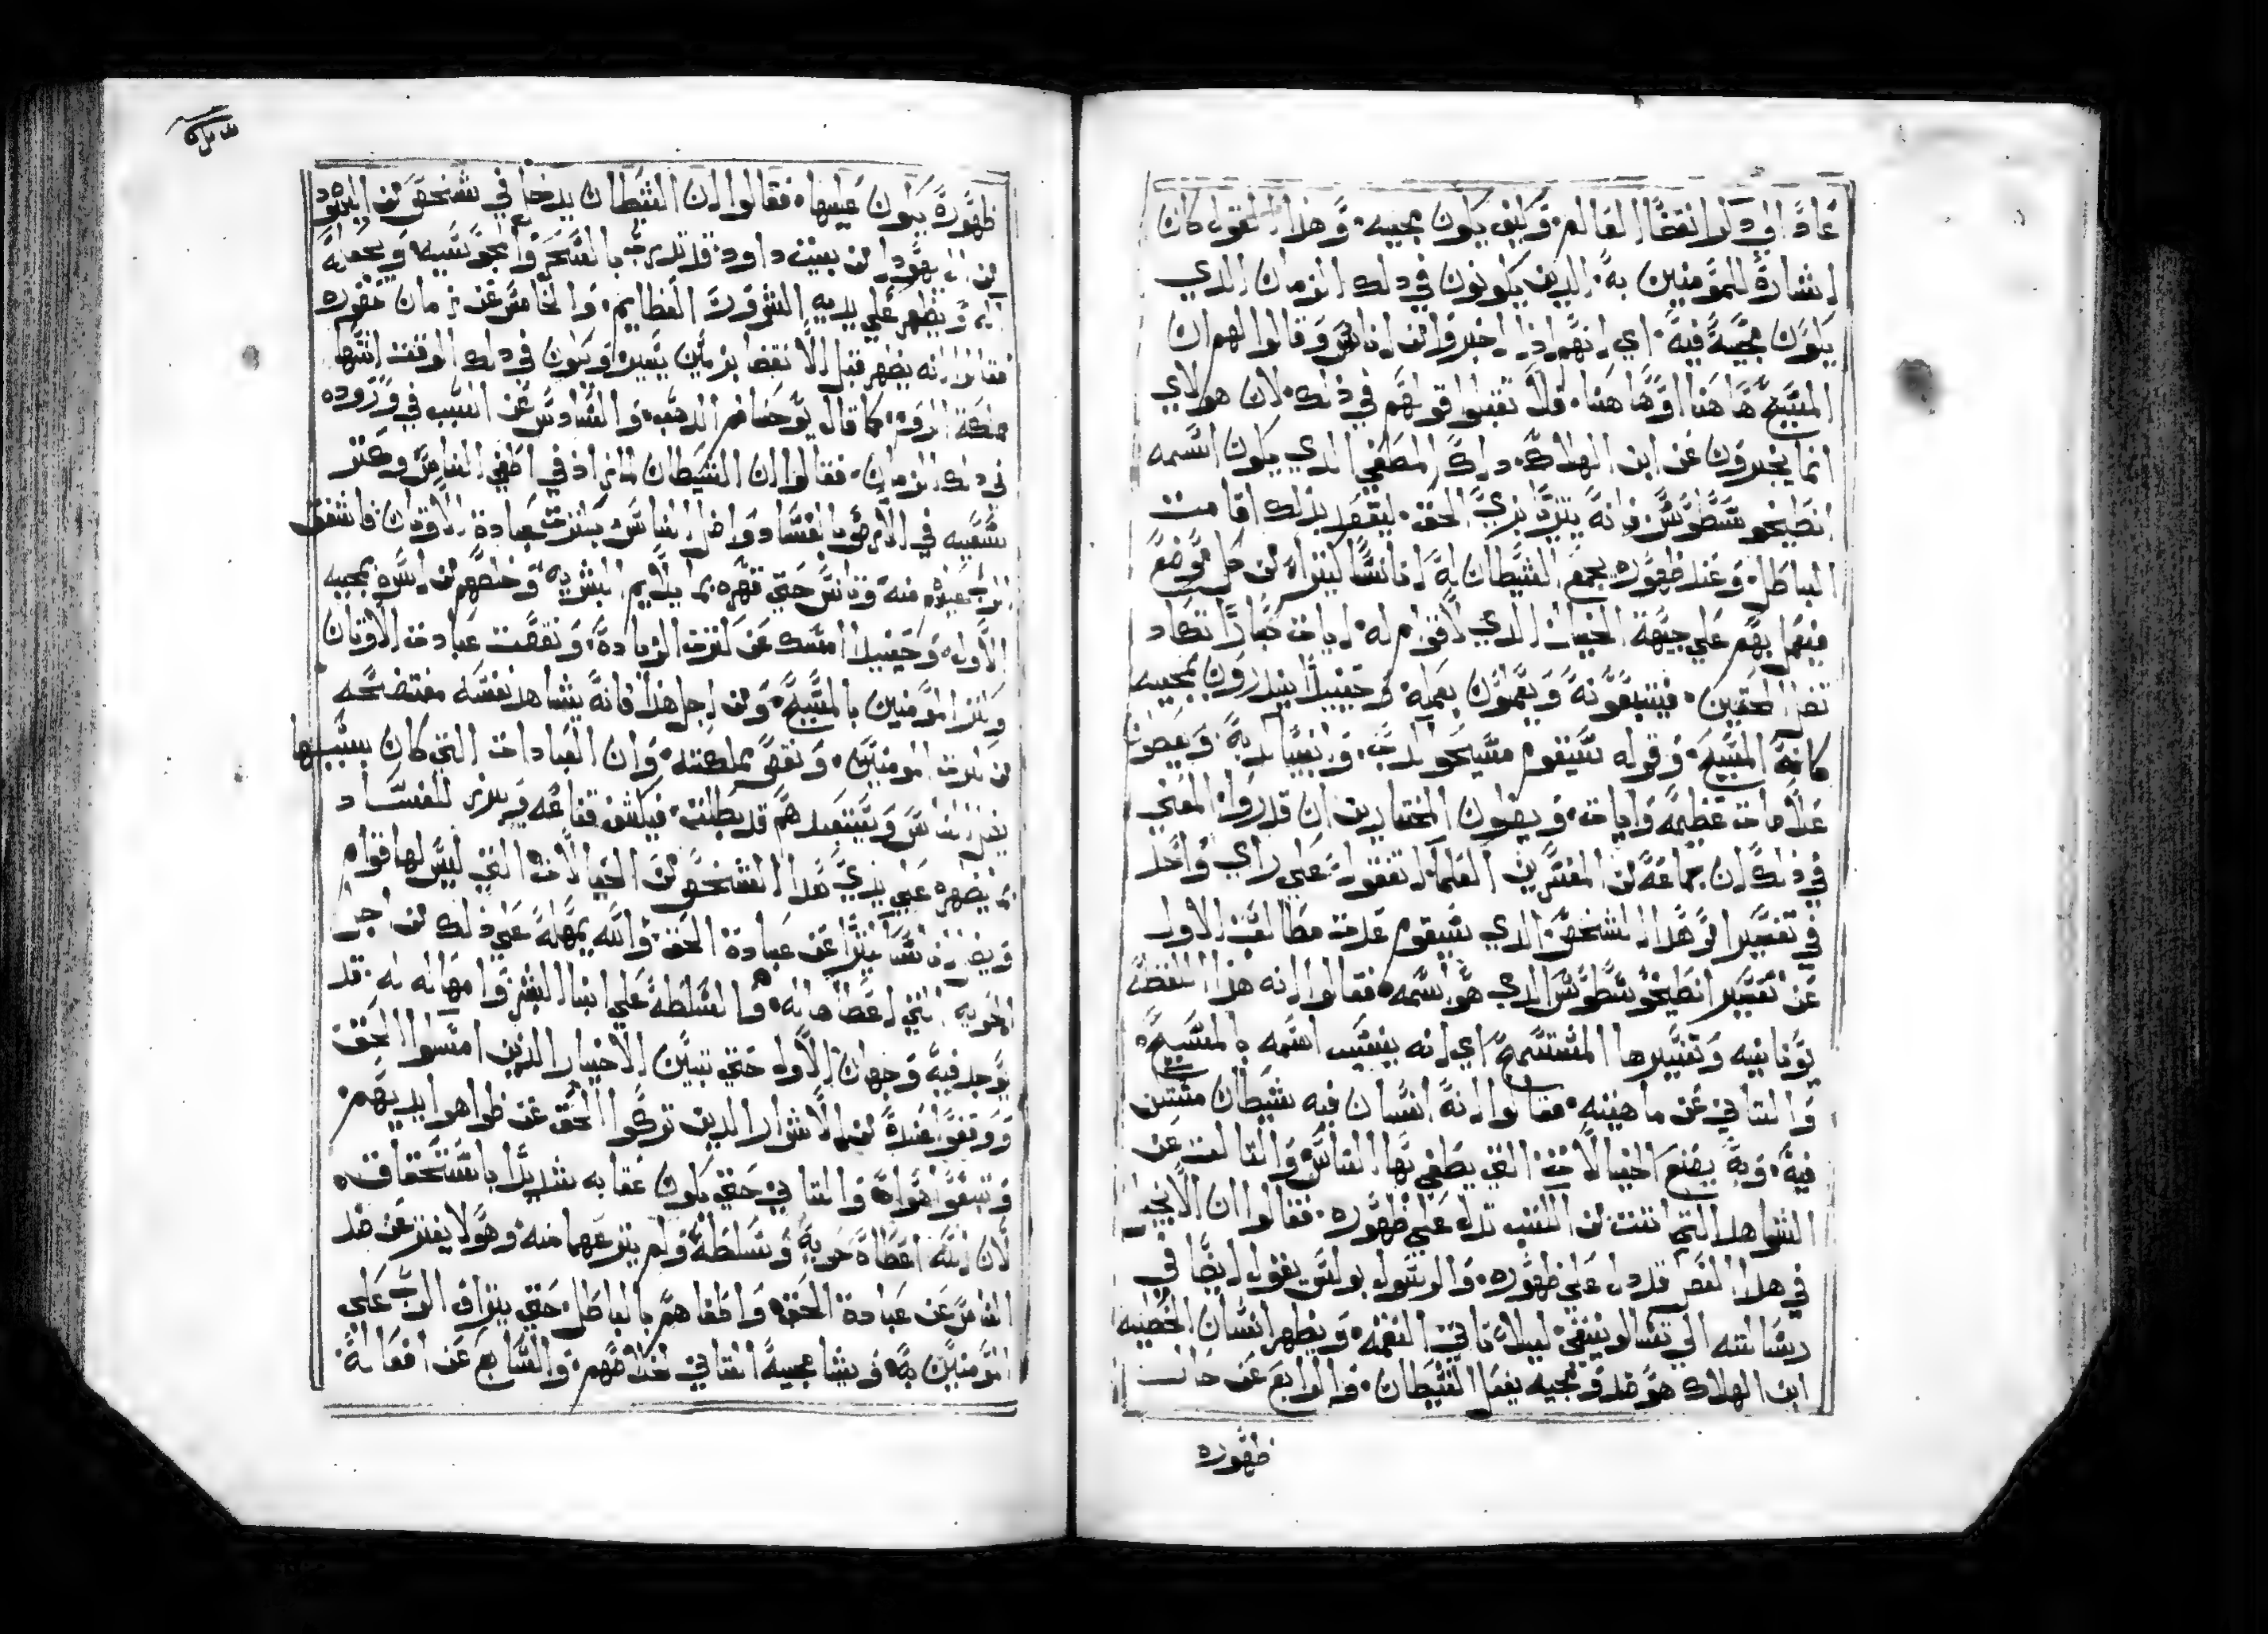 عاد الي ذكر انقضا العالم. وكيف يكون مجييه. وهذا القول كان
اشارة للمومنين به. الدين يكونون في دلك الزمان الدي
يكون مجييه فيه. اي انهم اذا اخبروا من اناس وقالوا لهم ان
المسيح هاهنا او هاهنا. فلا تقبلوا قولهم في ذلك. لان هولاي
انما يخبرون عن ابن الهلاك. داك المطغي الدي يكون اسمه
انطيخوسطوس فانه يتزيا بزي الحق. ليقصد بذلك اقامت
الباطل. وعند ظهوره يجمع الشيطان له اناسا كتيره من كل موضع
فيعمل بهم علي جهة الخيال الدي لا قوام له. ايات كبارا تكاد
تضل المحقين. فيتبعونه ويعملون بعمله. وحينيدا ينذرون بمجييه
كانه المسيح. وقوله سيقوم مسيحوا كدب. وانبيا كدبه. ويعطون
علامات عظيمه وايات. ويضلون المختارين ان قدروا. المعني
في ذلك ان جماعة من المفسرين العلما اتفقوا علي راي واحد
في تفسير امر هدا الشخص الدي سيقوم علامت مطالب الاول
عن تفسير انطيخوسطوس الدي هو اسمه. فقالوا انه هذا اللفظه
يونانيه وتفسيرها المتسمح اي انه ينتسب اسمه بالمسيح.
والتاني عن ماهيته. فقالوا انه انسان فيه شيطان متتبن
فيه. وبه يصنع الخيالات التي يطغي بها الناس والتالت عن
الشواهد التي اتت من الكتب تدل علي ظهوره. فقالوا ان الانجيل
في هدا الفصل قد دل علي ظهوره. والرسول بولس يقول ايضا في
رسالته الي تسالونيقي ليلا تاتي النقمه. ويظهر انسان الخطيه
ابن الهلاك هو ضد ومجيه بفعل الشيطان. والرابع عن حالت
ظهوره
ظهوره يكون عليها. فقالوا ان الشيطان يدخل في شخص من اليهود
من اليهود من بيت داود. قد تدرب بالسحر والمجوسيه ويجعله
له ويظهر علي يديه الشرور العظايم. والخامس عن زمان حضوره
فقالوا انه يظهر قبل الانقضا بزمن يسير ويكون في دلك الوقت انتها
مملكة الروم. كما قال يوحنا فم الدهب. والسادس عن السبب في وروده
في دلك الزمان. فقالوا ان الشيطان لما زاد في اطغي الناس وكتر
سعيه في الارض بالفساد واضل الناس بكترت عبادة الاوتان فاشفق
الرب عليهم منه وتانس حتي قهره بما يلايم البشريه وخلصهم من اسره بمجييه
الاول. وحينيدا امسك عن كترت الزياده. ونقصت عبادت الاوتان
وكتر المومنين بالمسيح. ومن اجل هدا فانه يشاهد نفسه مفتضحه
من كترت المومنين. ونقص مملكته. وان العبادات التي كان بسببها
يضل الناس ويستعبدهم قد بطلت. فيكشف قناعه ويبرز للفساد
بما يظهره علي يدي هدا الشخص من الخيالات التي ليس لها قوام
ويضل اناسا كتيرا عن عبادة الحق. والله يمهله علي ذلك من اجل
الحريه التي اعطاها له. والسلطة علي ابنا البشر وامهاله له. قد
يوجد فيه وجهان الاول حتي تتبين الاخيار الذين امسكوا الحق
ووقفوا عنده من الاشرار الدين تركوا الحق عن ظواهر ايديهم.
وتبعوا هواه. والتاني حتي يكون عقابه شديدا باستحقاق.
لان الله اعطاه حريه وتسلطه. ولم ينزعهما منه. وهو لا يفتر عن ضد
الناس عن عبادة الحق. واطغاهم بالباطل حتي يتراف الرب علي
المومنين به. ويشا مجييه التاني لخلاصهم. والسابع عن افعاله.